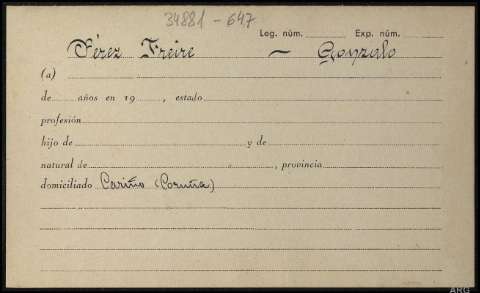 34881-647
Leg. núm. Exp. núm.
Pérez Freire - Gonzalo
(a)
de años en 19 , estado
profesión
hijo de y de
natural de , provincia
domiciliado Cariño (Coruña)
ARG